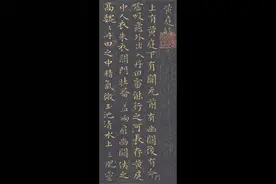 黃庭經
上有黃庭下有關元前有幽闕後有命
噓吸廬外出入丹田審能行之可長存黃庭
中人衣朱衣關門壯籥蓋兩扉幽闕俠之
高巍巍丹田之中精氣微玉池清水上生肥靈